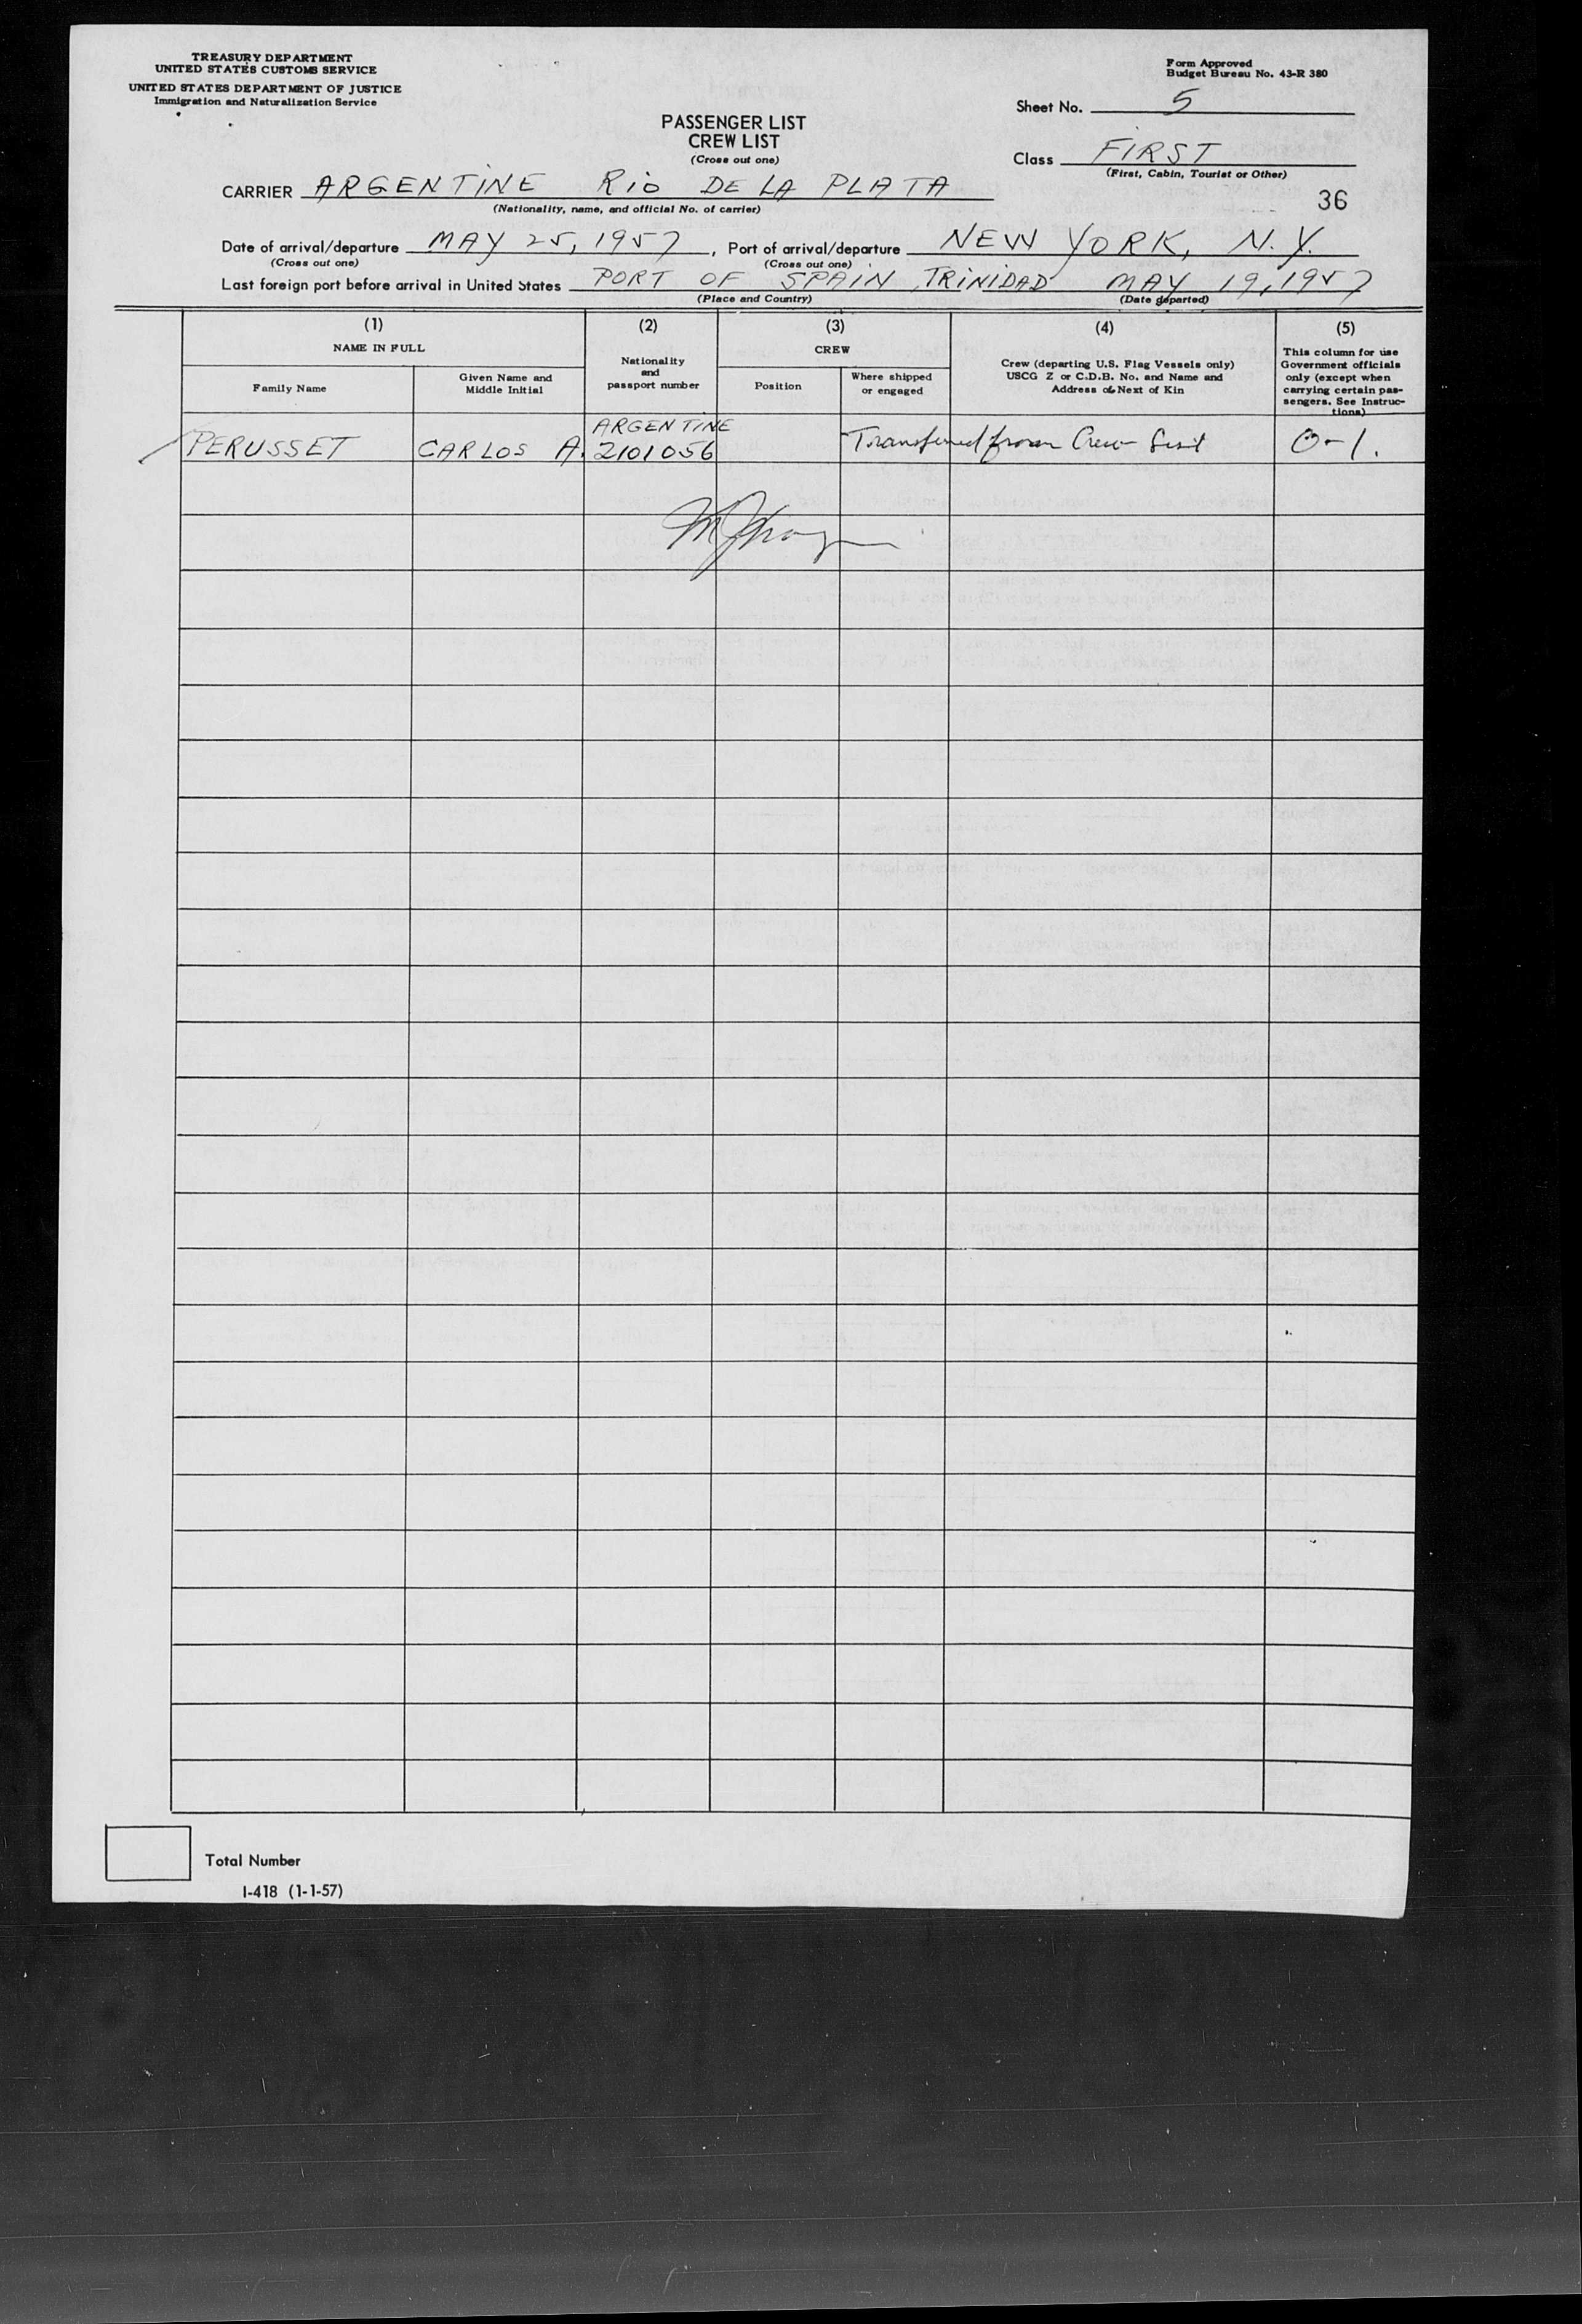 TREASURY DEPARTMENT
UNITED STATES CUSTOMS SERVICE
UNITED STATES DEPARTMENT OF JUSTICE
Immigration and Naturalization Service
Form Approved
Budget Bureau No. 43-R 380
Sheet No. 5
PASSENGER LIST
CREW LIST
(Cross out one)
Class FIRST
(First, Cabin, Tourist or Other)
CARRIER ARGENTINE RIO DE LA PLATA
(Nationality, name, and official No. of carrier)
36
Date of arrival/departure MAY 25, 1957, Port of arrival/departure NEW YORK, N.Y.
(Cross out one) (Cross out one)
Last foreign port before arrival in United States PORT OF SPAIN TRINIDAD MAY 19, 1957
(Place and Country) (Date departed)
(1)
NAME IN FULL
Family Name
Given Name and
Middle Initial
(2)
Nationality
and
passport number
(3)
CREW
Position
Where shipped
or engaged
(4)
Crew (departing U.S. Flag Vessels only)
USCG Z or C.D.B. No. and Name and
Address of Next of Kin
(5)
This column for use
Government officials
only (except when
carrying certain pas-
sengers. See Instruc-
tions)
ARGENTINE
PERUSSET CARLOS A. 2101056 Transferred from Crew List O-1.
Total Number
I-418 (1-1-57)